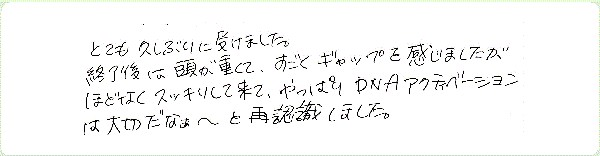 とても久しぶりに受けました。
終了後は頭が重くて、すごくギャップを感じましたが
ほどなくスッキリして来て、やっぱりDNAアクティベーション
は大切だなぁ〜と再認識しました。